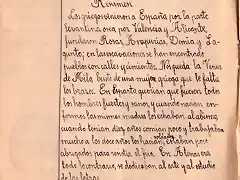 Resumen
Los griegos vinieron a España por la parte
levantina, o sea, por Valencia y Alicante,
fundaron Rosas, Ampurias, Denia y Sa-
gunto; en las excavaciones se han encontrado
pueblos con calles y cimientos. Nos queda la Venus
de Milo, busto de una mujer griega que le falta
los brazos. En Esparta querian que fuesen todos
los hombres fuertes y sanos, y cuando nacian en-
fermos las mismas madres los echaban al abismo,
cuando tenian diez años comian poco y trabajaban
mucho, a los doce años los hacian soldados, estaban poco
abrigados para resistir el frio. En Atenas era
todo lo contrario, se dedicaban al arte y al estudio
de las letras.